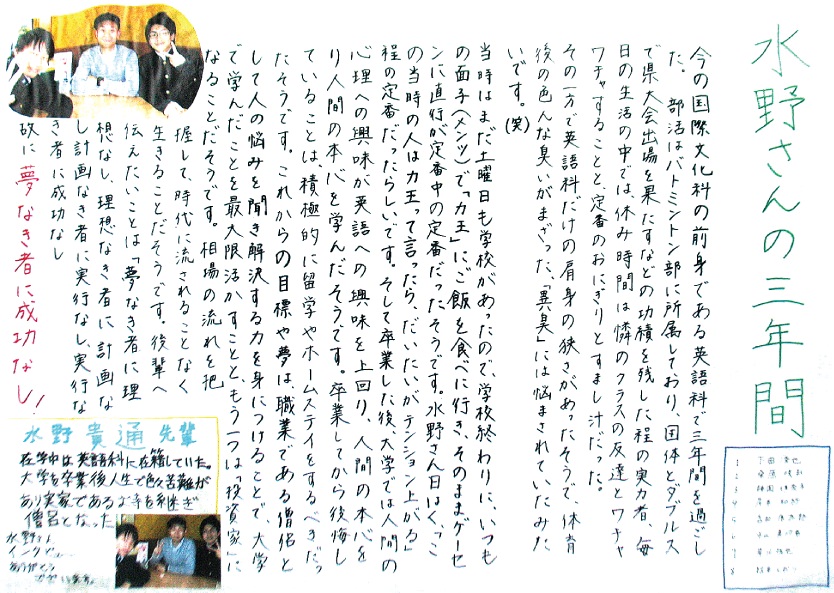 水野さんの三年間
今の国際文化科の前身である英語科で三年間を過ごし
た。部活はバトミントン部に所属しており、団体とダブルス
で県大会出場を果たすなどの功積を残した程の実力者、毎
日の生活の中では休み時間は隣のクラスの友達とワチャ
ワチャすることと、定番のおにぎりとすまし汁だった。
その一方で英語科だけの肩身の狭さがあったそうで、体育
後の色んな臭いがまざった、「異臭」には悩まされていたみた
いです。(笑)
当時はまだ土曜日も学校があったので、学校終わりに、いつも
の面子(メンツ)で「力王」にご飯を食べに行き、そのままゲーセ
ンに直行が定番中の定番だったそうです。水野さん曰く、「こ
の当時の人は力王って言ったら、だいたいがテンション上がる」
程の定番だったらしいです。そして卒業した後、大学では人間の
心理への興味が英語への興味を上回り、人間の本心を
り人間の本心を学んだそうです。卒業してから後悔し
ていることは、積極的に留学やホームステイをするべきだっ
たそうです。これからの目標や夢は、職業である僧侶と
して人の悩みを聞き解決する力を身につけることで、大学
で学んだことを最大限活かすことと、もう一つは「投資家」に
なることだそうです。相場の流れを把
握して、時代に流されることなく
生きることだそうです。後輩へ
伝えたいことは「夢なき者に理
想なし、理想なき者に計画な
し計画なき者に実行なし、実行な
き者に成功なし
故に夢なき者に成功なし!
水野貴通先輩
在学中は英語科に在籍していた。
大学を卒業後人生で色々苦難が
あり実家であるお寺を継ぎ
僧侶となった
水野さん
インタビュー
ありがとう
ございます。
1
2
3
4
5
6
7
8